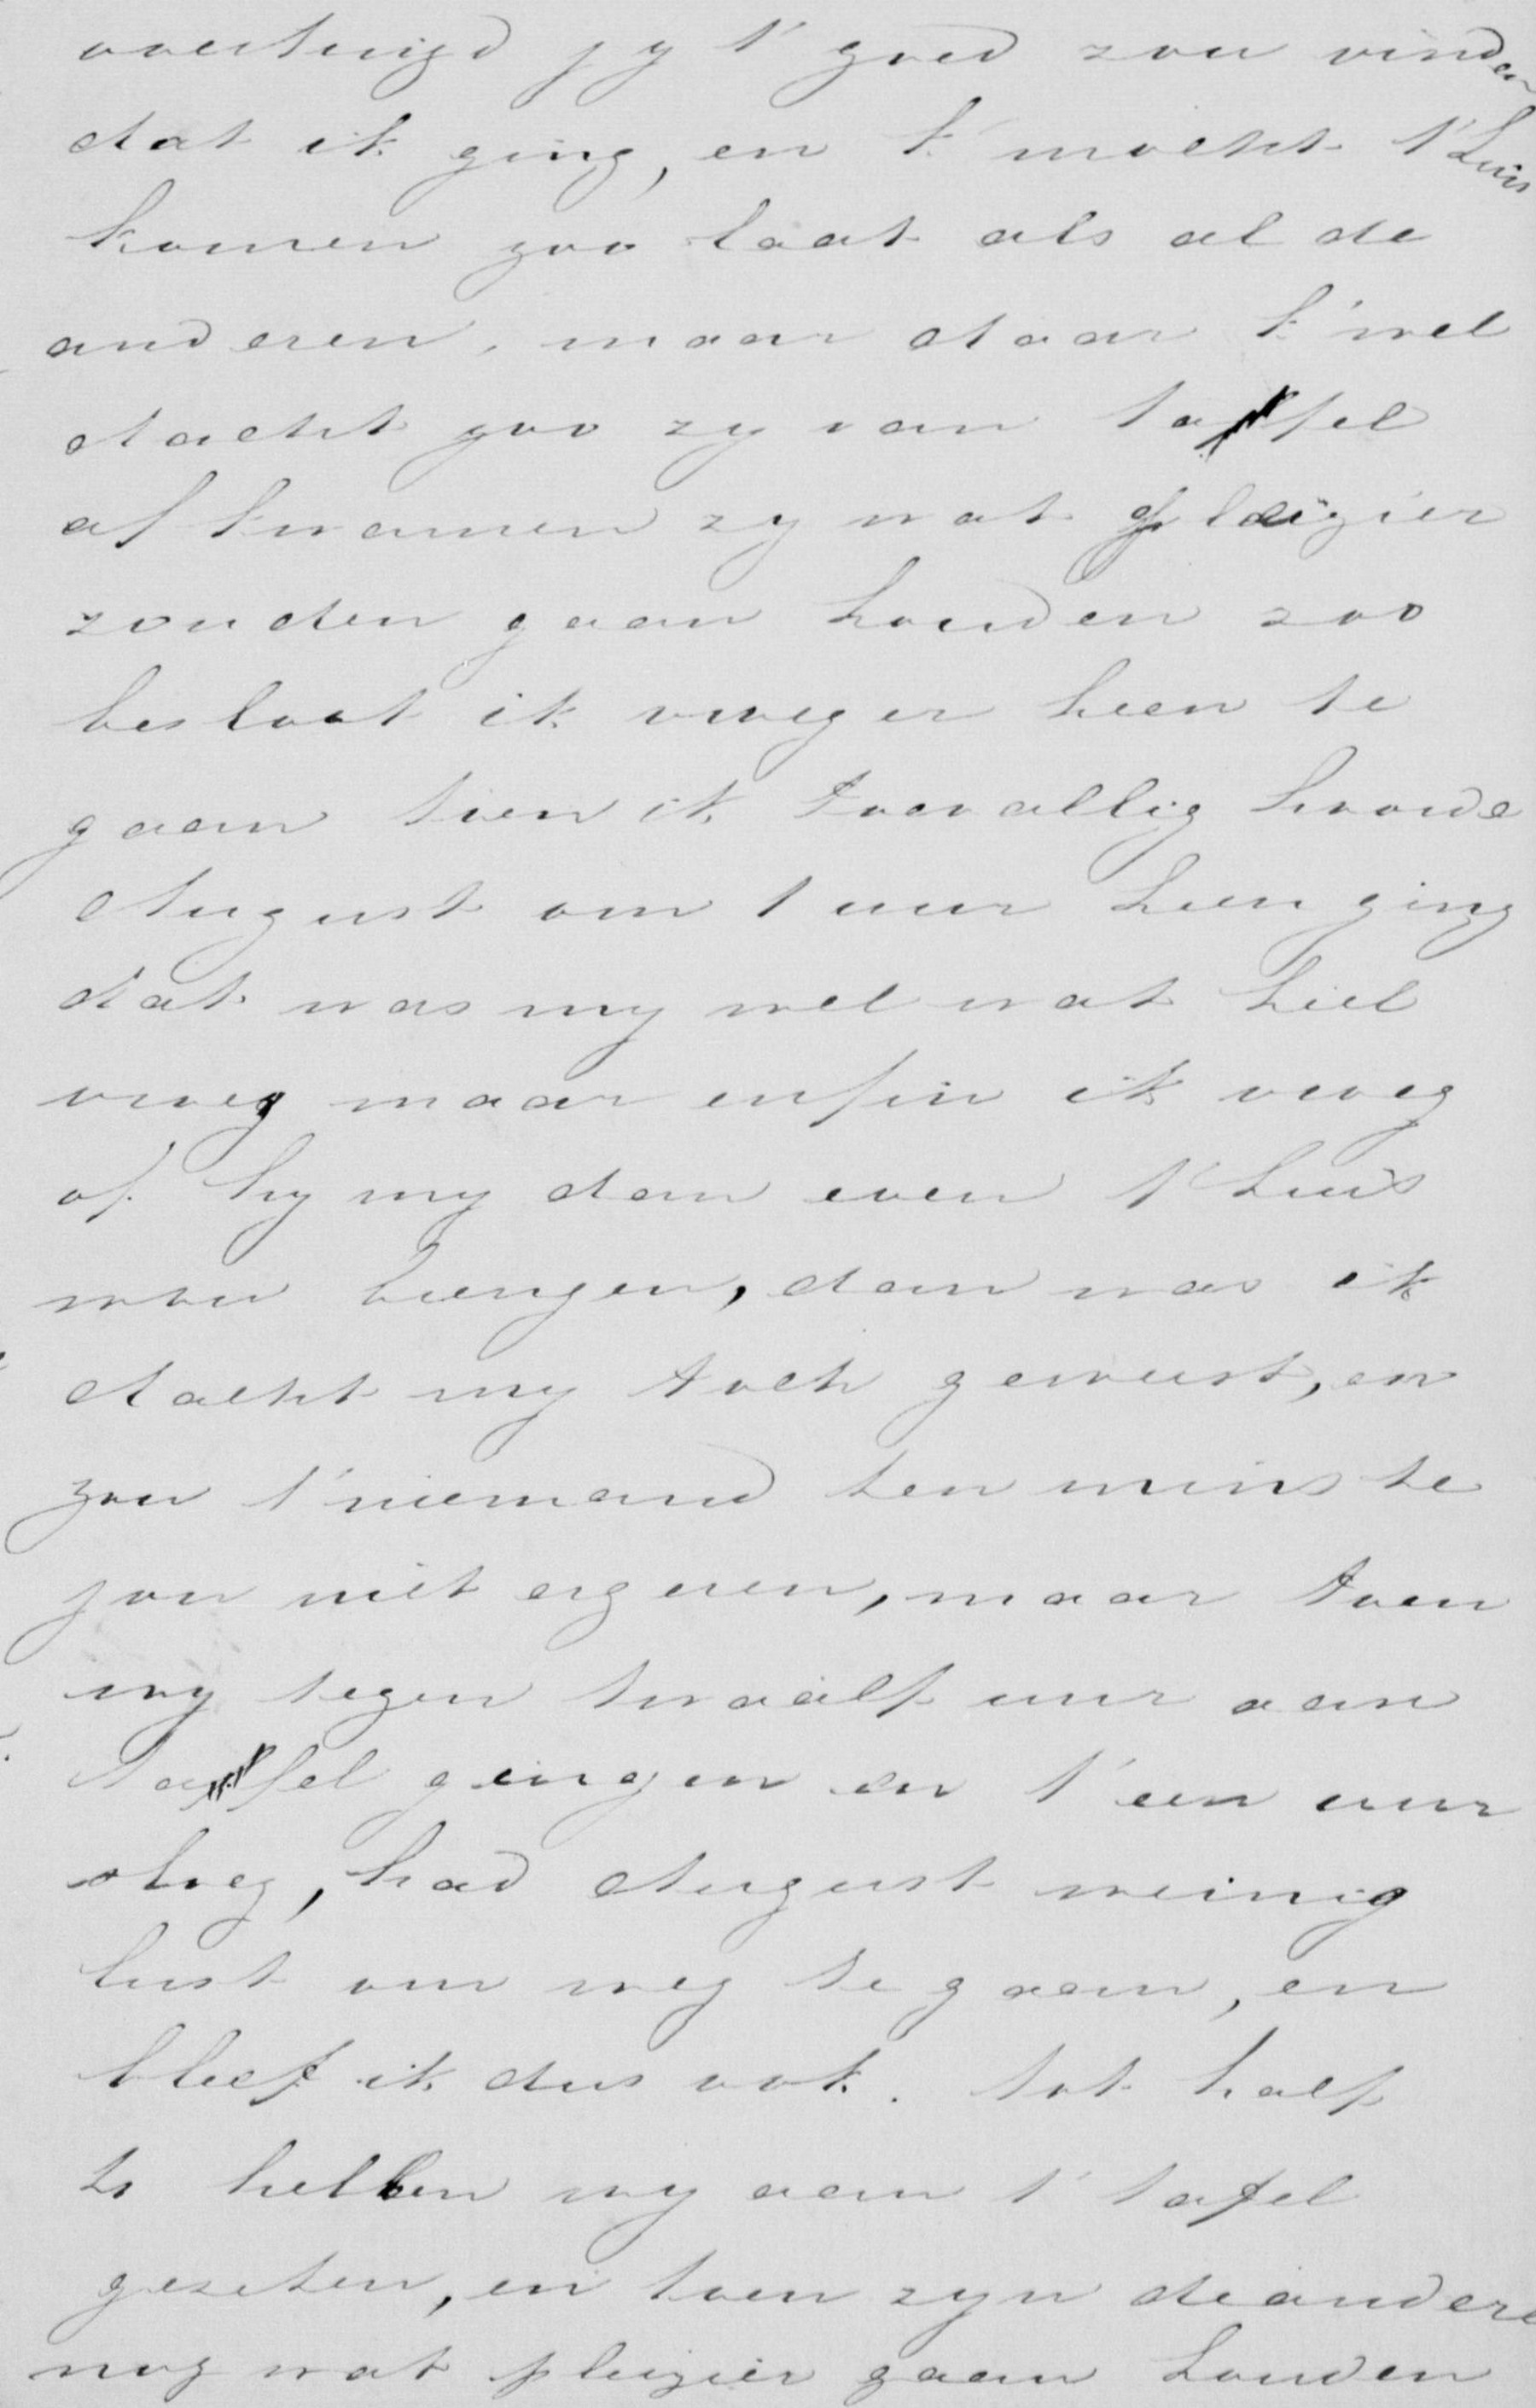 overtuigd jy t' goed zou vinden
dat ik ging, en k' mocht t'huis
komen zoo laat als al de
anderen, maar daar k' wel
dacht zoo zy van tafel
af kwamen zy wat pleizier
zouden gaan houden zoo
besloot ik vroeger heen te
gaan toen ik toevallig hoorde
August om 1 uur heen ging
dat was my wel wat heel
vroeg maar enfin ik vroeg
of hy my dan even t'huis
wou brengen, dan was ik
dacht my toch geweest, en
zou t' niemand ten minste
jou niet ergeren, maar toen
wy tegen twaalf uur aan
tafel gingen en t' een uur
sloeg, had August weinig
lust om weg te gaan, en
bleef ik dus ook. tot half
hebben wy aan t' tafel
gezeten, en toen zyn de andere
nog wat pleizier gaan houden